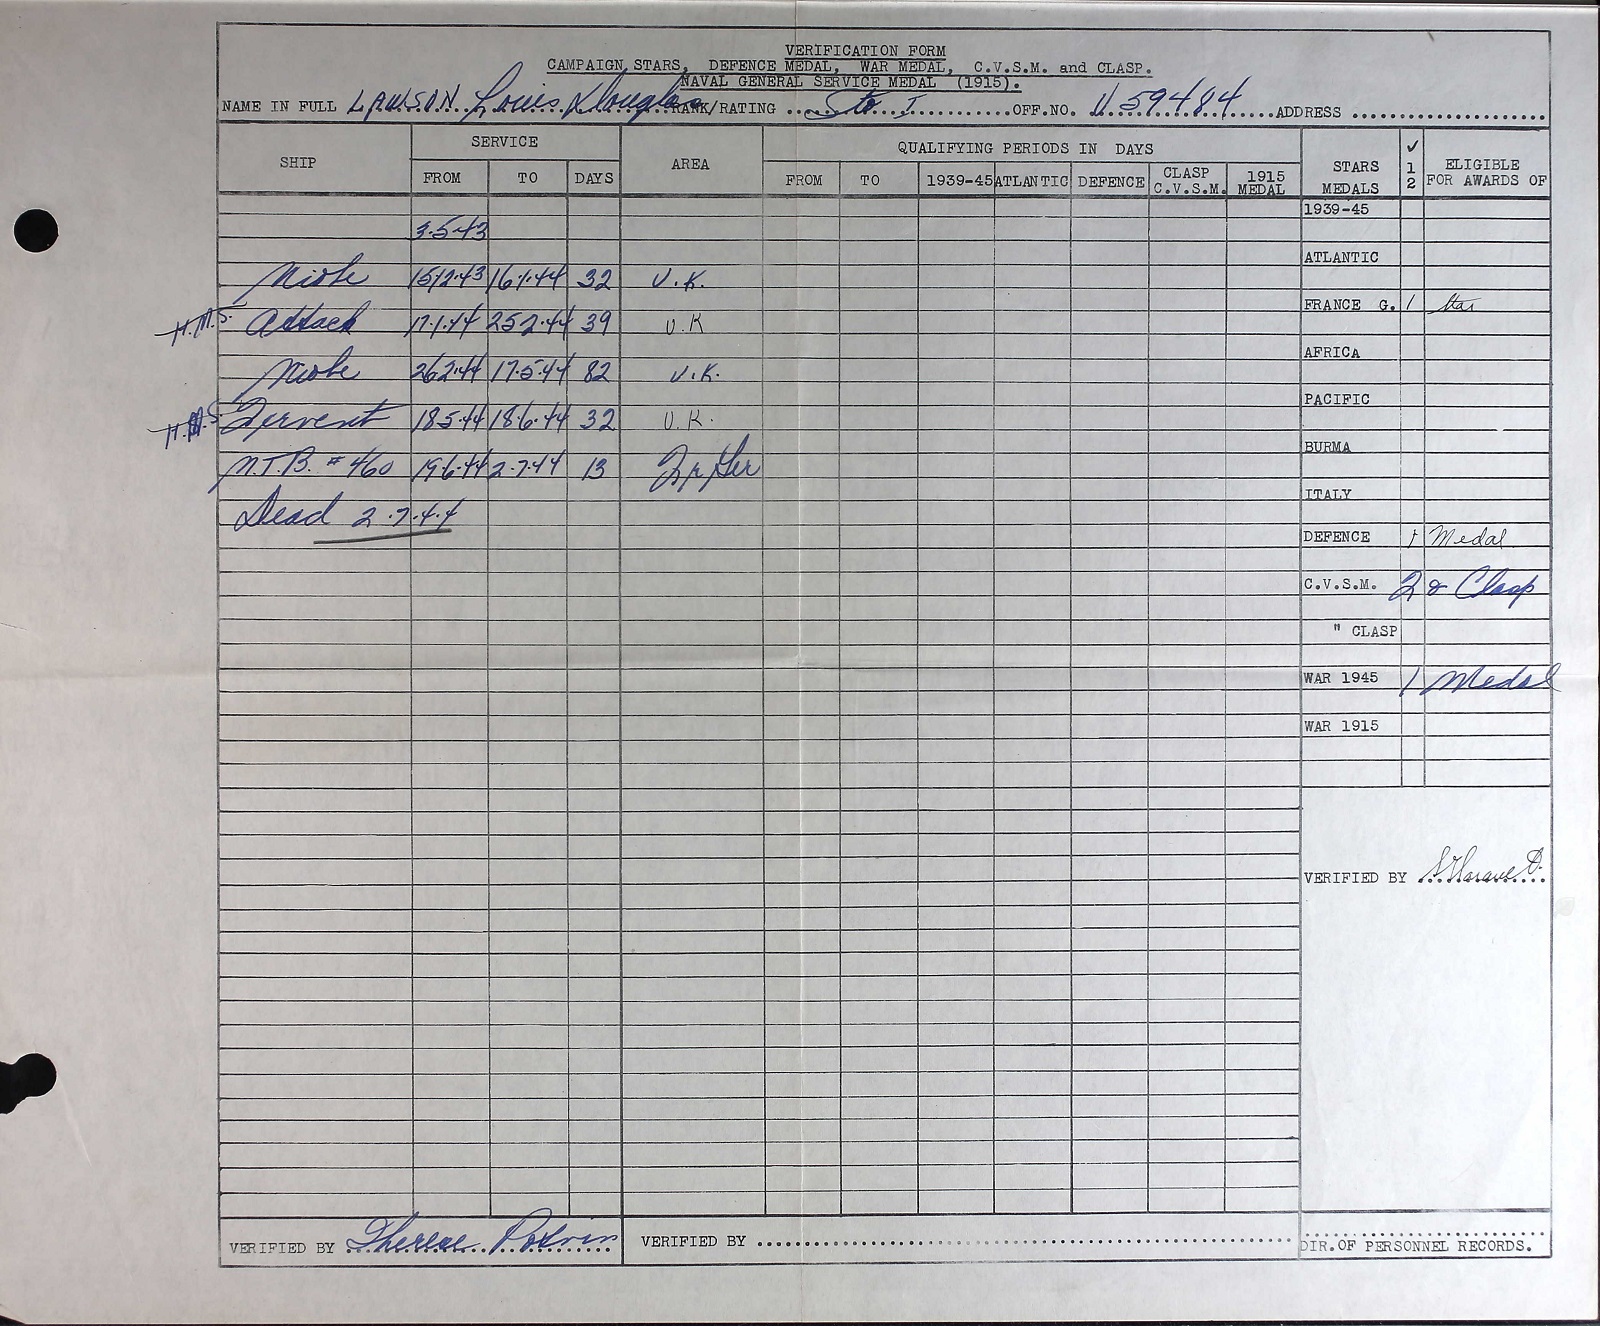 VERIFICATION FORM
CAMPAIGN STARS, DEFENCE MEDAL, WAR MEDAL, C.V.S.M. and CLASP.
NAVAL GENERAL SERVICE MEDAL (1915).
NAME IN FULL LAWSON Louis Douglas RANK/RATING Sto I OFF.NO. V.59484 ADDRESS
SERVICE QUALIFYING PERIODS IN DAYS ✓
SHIP AREA STARS 1 ELIGIBLE
FROM TO DAYS FROM TO 1939-45 ATLANTIC DEFENCE CLASP C.V.S.M. 1915 MEDAL MEDALS 2 FOR AWARDS OF
1939-45
3.5.43
ATLANTIC
Niobe 15.12.43 16.1.44 32 U.K.
FRANCE G. 1 Star
H.M.S. Attack 17.1.44 25.2.44 39 U.K
AFRICA
Niobe 26.2.44 17.5.44 82 U.K.
PACIFIC
H.M.S. Fervent 18.5.44 18.6.44 32 U.K.
BURMA
M.T.B. # 460 19.6.44 2.7.44 13 Fr Ger
ITALY
Dead 2.7.44
DEFENCE 1 Medal
C.V.S.M. 2 & Clasp
" CLASP
WAR 1945 1 Medal
WAR 1915
VERIFIED BY
VERIFIED BY Therese VERIFIED BY
DIR. OF PERSONNEL RECORDS.